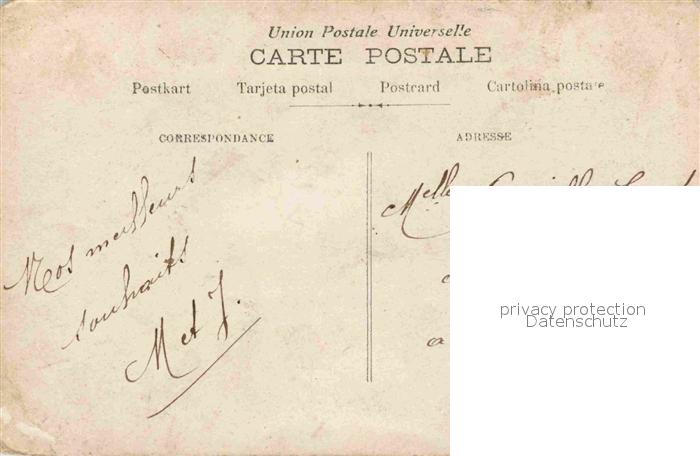 Union Postale Universelle
CARTE POSTALE
Postkart Tarjeta postal Postcard Cartolina postale
CORRESPONDANCE
ADRESSE
Nos meilleurs
souhaits
M et J.
Melle
a
privacy protection
Datenschutz